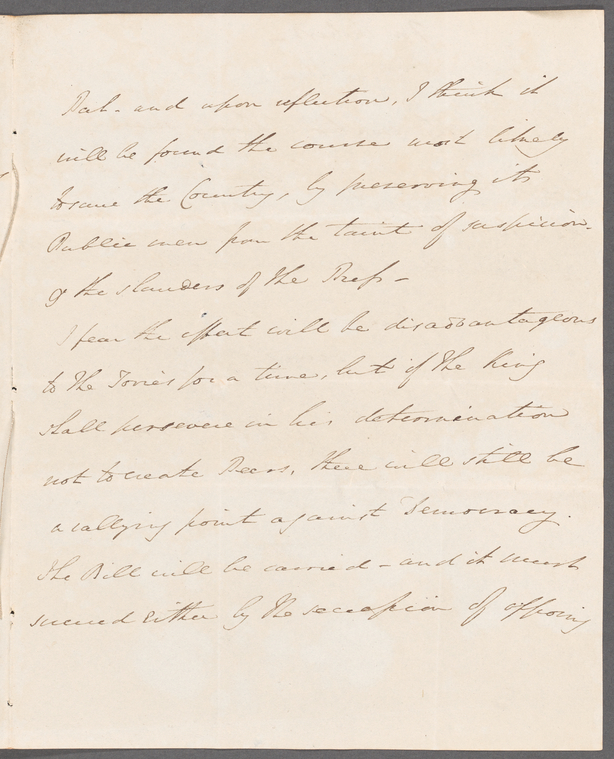 and upon reflection, I think it
will be found the course most likely
to save the Country, by preserving its
Public men from the taint of suspicion.
& the slanders of the Press -
I fear the effect will be disadvantageous
to the Tories for a time, but if the King
shall persevere in his determination
not to create Peers, there will still be
a rallying point against Democracy.
The Bill will be carried - and it must
succeed either by the secession of opposing